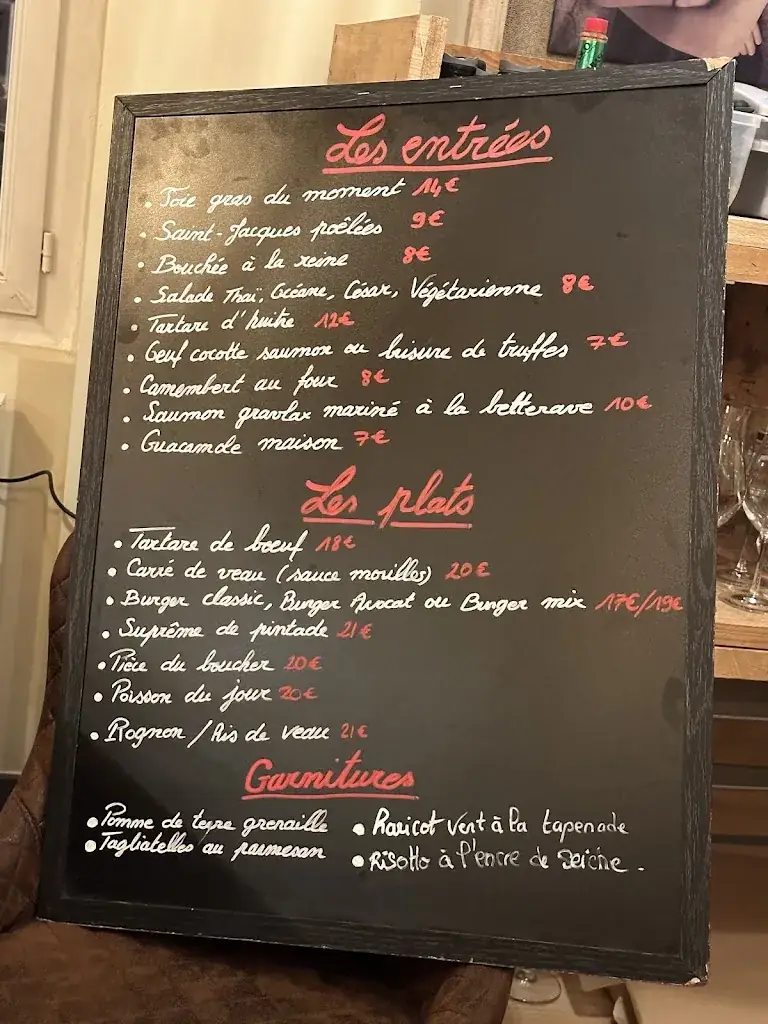 Les entrées
• Foie gras du moment 14€
• Saint-Jacques poêlées 9€
• Bouchée à la reine 8€
• Salade Thaï, Océane, César, Végétarienne 8€
• Tartare d'huitre 12€
• Oeuf cocotte saumon ou brisure de truffes 7€
• Camembert au four 8€
• Saumon gravlax mariné à la betterave 10€
• Guacamole maison 7€
Les plats
• Tartare de boeuf 18€
• Carré de veau (sauce morilles) 20€
• Burger classic, Burger Avocat ou Burger mix 17€/19€
• Suprême de pintade 21€
• Pièce du boucher 20€
• Poisson du jour 20€
• Rognon / Ris de veau 21€
Garnitures
• Pomme de terre grenaille
• Tagliatelles au parmesan
• Haricot vert à la tapenade
• Risotto à l'encre de seiche.